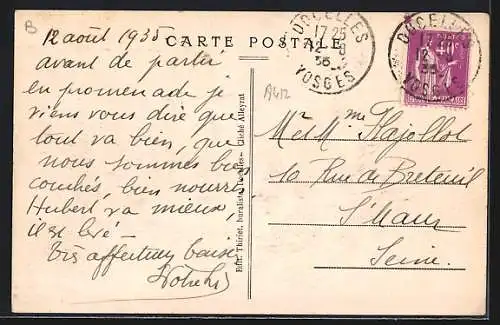 B
12 août 1935
CARTE POSTALE
DOCELLES
17 25
12 -8
35
VOSGES
DOCELLES
VOSGES
avant de partir
en promenade je
viens vous dire que
tout va bien, que
nous sommes bien
couchés, bien nourris
Hubert va mieux,
il se lève —
Très affectueux baisers
A412
Mr et Mme
10 Rue de Breteuil
St Maur
Seine.
Edit. Thirier, buraliste, Docelles - Cliché Alleyrat